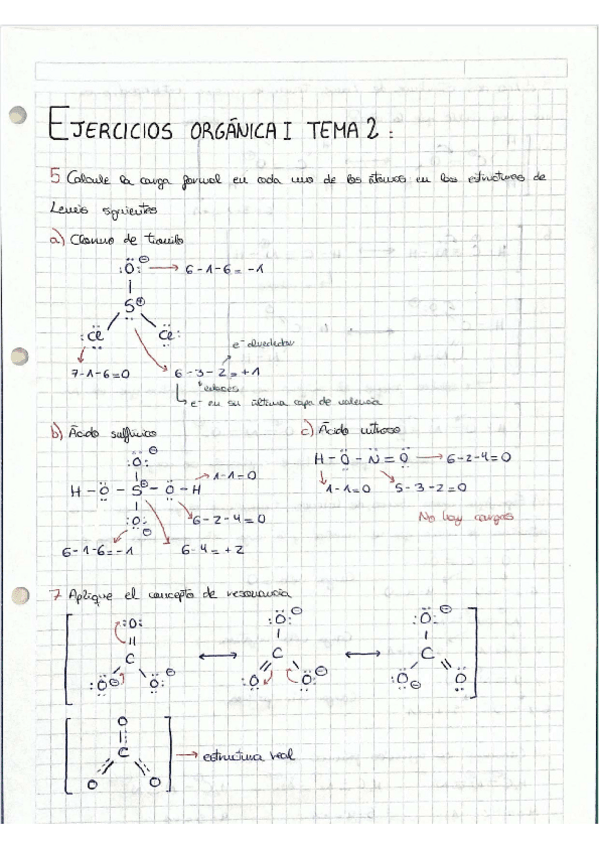 EJERCICIOS ORGÁNICA I TEMA 2:
5 Calcule la carga formal en cada uno de los átomos en las estructuras de
Lewis siguientes
a) Cloruro de tionilo
:Ö:⊖ → 6-1-6 = -1
S⊕
:Cl Cl:
e⁻ alrededor
7-1-6=0 6-3-2 = +1
enlaces
e⁻ en su última capa de valencia
b) Ácido sulfúrico c) Ácido nitroso
:Ö:⊖ H-Ö-N̈=Ö → 6-2-4=0
1-1=0 1-1=0 5-3-2=0
H-Ö-S-Ö-H
:Ö:⊖ 6-2-4=0 No hay cargas
6-1-6=-1 6-4=+2
7 Aplique el concepto de resonancia
:O: :Ö:⊖ :Ö:⊖
C ↔ C ↔ C
:Ö⊖ Ö:⊖ :O Ö:⊖ :Ö⊖ O
O
C → estructura real
O O